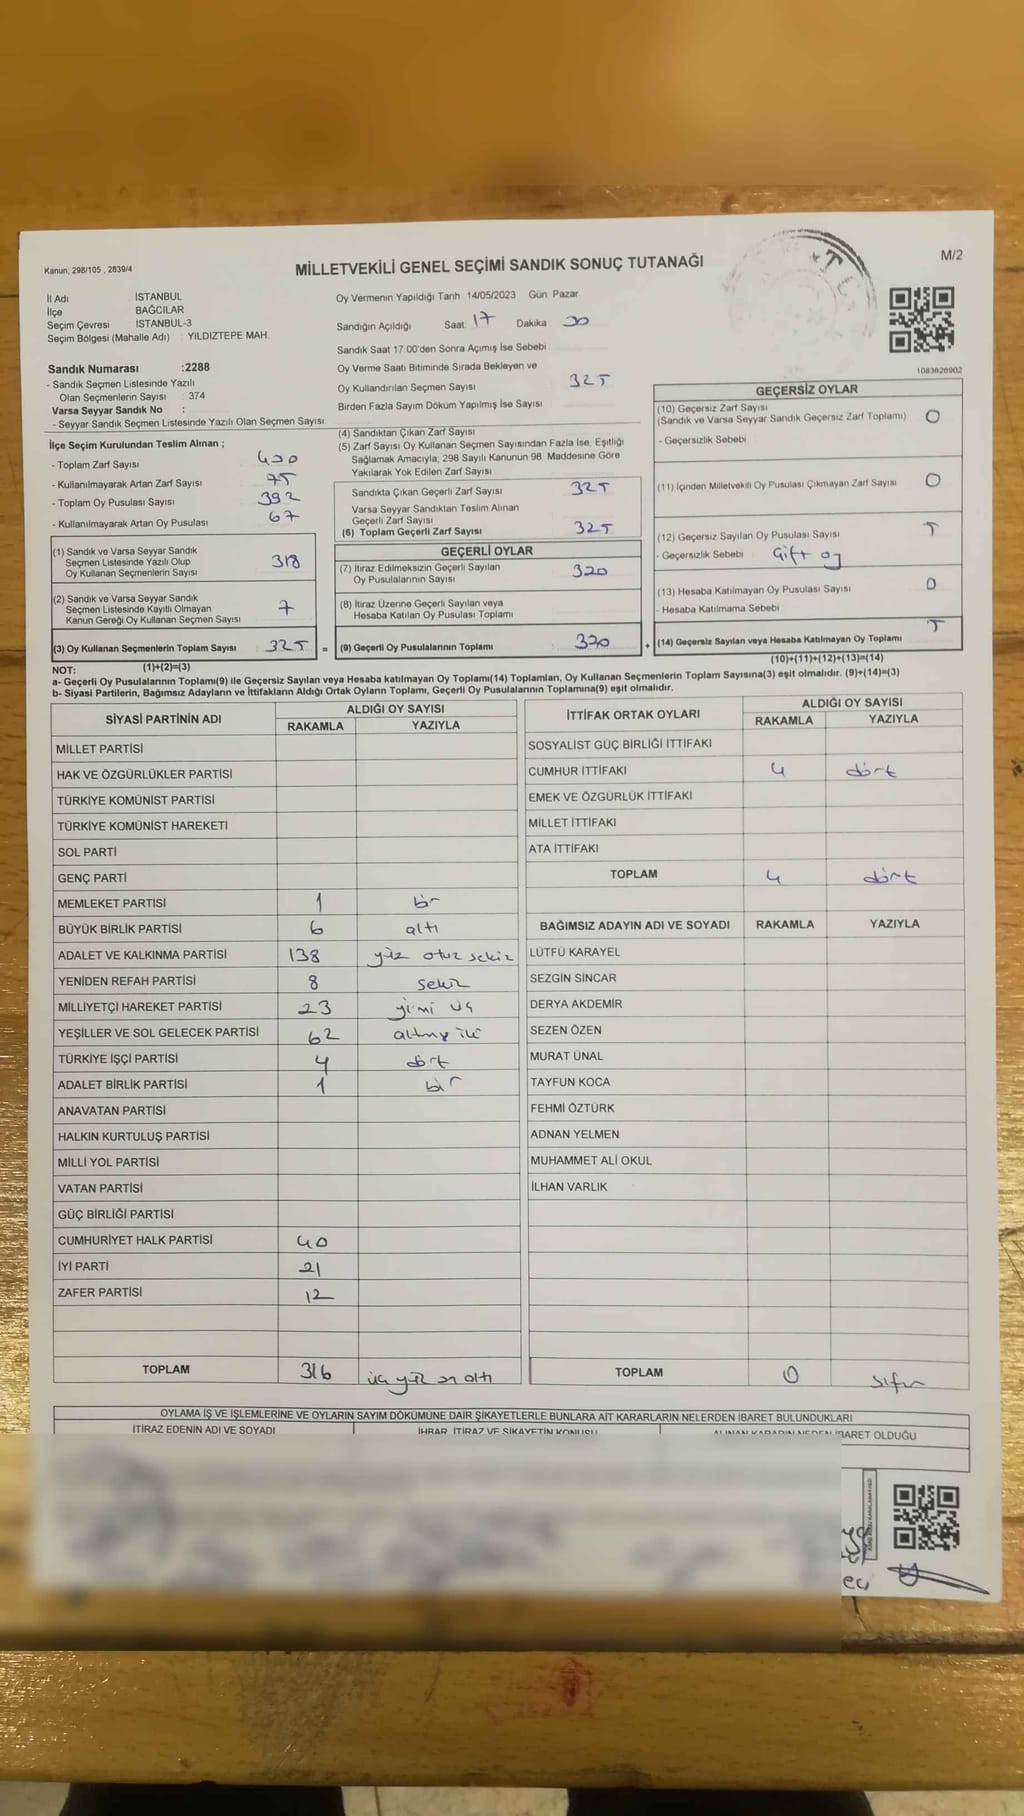 Kanun; 298/105 , 2839/4
MİLLETVEKİLİ GENEL SEÇİMİ SANDIK SONUÇ TUTANAĞI
M/2
İl Adı İSTANBUL
İlçe BAĞCILAR
Seçim Çevresi İSTANBUL-3
Seçim Bölgesi (Mahalle Adı) : YILDIZTEPE MAH.
Sandık Numarası :2288
- Sandık Seçmen Listesinde Yazılı
Olan Seçmenlerin Sayısı : 374
Varsa Seyyar Sandık No :
- Seyyar Sandık Seçmen Listesinde Yazılı Olan Seçmen Sayısı:
Oy Vermenin Yapıldığı Tarih 14/05/2023 Gün: Pazar
Sandığın Açıldığı Saat 17 Dakika 30
Sandık Saat 17.00'den Sonra Açımış İse Sebebi
Oy Verme Saati Bitiminde Sırada Bekleyen ve
Oy Kullandırılan Seçmen Sayısı 325
Birden Fazla Sayım Döküm Yapılmış İse Sayısı
1083626902
İlçe Seçim Kurulundan Teslim Alınan ;
- Toplam Zarf Sayısı 400
- Kullanılmayarak Artan Zarf Sayısı 75
- Toplam Oy Pusulası Sayısı 392
- Kullanılmayarak Artan Oy Pusulası 67
(1) Sandık ve Varsa Seyyar Sandık
Seçmen Listesinde Yazılı Olup
Oy Kullanan Seçmenlerin Sayısı 318
(2) Sandık ve Varsa Seyyar Sandık
Seçmen Listesinde Kayıtlı Olmayan
Kanun Gereği Oy Kullanan Seçmen Sayısı 7
(3) Oy Kullanan Seçmenlerin Toplam Sayısı : 325 =
(4) Sandıktan Çıkan Zarf Sayısı
(5) Zarf Sayısı Oy Kullanan Seçmen Sayısından Fazla İse, Eşitliği
Sağlamak Amacıyla; 298 Sayılı Kanunun 98. Maddesine Göre
Yakılarak Yok Edilen Zarf Sayısı
Sandıkta Çıkan Geçerli Zarf Sayısı 325
Varsa Seyyar Sandıktan Teslim Alınan
Geçerli Zarf Sayısı
(6) Toplam Geçerli Zarf Sayısı 325
GEÇERLİ OYLAR
(7) İtiraz Edilmeksizin Geçerli Sayılan
Oy Pusulalarının Sayısı 320
(8) İtiraz Üzerine Geçerli Sayılan veya
Hesaba Katılan Oy Pusulası Toplamı
(9) Geçerli Oy Pusulalarının Toplamı 320 +
GEÇERSİZ OYLAR
(10) Geçersiz Zarf Sayısı
(Sandık ve Varsa Seyyar Sandık Geçersiz Zarf Toplamı) 0
- Geçersizlik Sebebi
(11) İçinden Milletvekili Oy Pusulası Çıkmayan Zarf Sayısı 0
(12) Geçersiz Sayılan Oy Pusulası Sayısı 5
- Geçersizlik Sebebi Çift oy
(13) Hesaba Katılmayan Oy Pusulası Sayısı 0
- Hesaba Katılmama Sebebi
(14) Geçersiz Sayılan veya Hesaba Katılmayan Oy Toplamı 5
NOT: (1)+(2)=(3)
(10)+(11)+(12)+(13)=(14)
a- Geçerli Oy Pusulasının Toplamı(9) ile Geçersiz Sayılan veya Hesaba katılmayan Oy Toplamı(14) Toplamları, Oy Kullanan Seçmenlerin Toplam Sayısına(3) eşit olmalıdır. (9)+(14)=(3)
b- Siyasi Partilerin, Bağımsız Adayların ve İttifakların Aldığı Ortak Oyların Toplamı, Geçerli Oy Pusulalarının Toplamına(9) eşit olmalıdır.
SİYASİ PARTİNİN ADI ALDIĞI OY SAYISI
RAKAMLA YAZIYLA
MİLLET PARTİSİ
HAK VE ÖZGÜRLÜKLER PARTİSİ
TÜRKİYE KOMÜNİST PARTİSİ
TÜRKİYE KOMÜNİST HAREKETİ
SOL PARTİ
GENÇ PARTİ
MEMLEKET PARTİSİ 1 bir
BÜYÜK BİRLİK PARTİSİ 6 altı
ADALET VE KALKINMA PARTİSİ 138 yüz otuz sekiz
YENİDEN REFAH PARTİSİ 8 sekiz
MİLLİYETÇİ HAREKET PARTİSİ 23 yirmi üç
YEŞİLLER VE SOL GELECEK PARTİSİ 62 altmış iki
TÜRKİYE İŞÇİ PARTİSİ 4 dört
ADALET BİRLİK PARTİSİ 1 bir
ANAVATAN PARTİSİ
HALKIN KURTULUŞ PARTİSİ
MİLLİ YOL PARTİSİ
VATAN PARTİSİ
GÜÇ BİRLİĞİ PARTİSİ
CUMHURİYET HALK PARTİSİ 40
İYİ PARTİ 21
ZAFER PARTİSİ 12
TOPLAM 316 üç yüz on altı
İTTİFAK ORTAK OYLARI ALDIĞI OY SAYISI
RAKAMLA YAZIYLA
SOSYALİST GÜÇ BİRLİĞİ İTTİFAKI
CUMHUR İTTİFAKI 4 dört
EMEK VE ÖZGÜRLÜK İTTİFAKI
MİLLET İTTİFAKI
ATA İTTİFAKI
TOPLAM 4 dört
BAĞIMSIZ ADAYIN ADI VE SOYADI RAKAMLA YAZIYLA
LÜTFÜ KARAYEL
SEZGİN SİNCAR
DERYA AKDEMİR
SEZEN ÖZEN
MURAT ÜNAL
TAYFUN KOCA
FEHMİ ÖZTÜRK
ADNAN YELMEN
MUHAMMET ALİ OKUL
İLHAN VARLIK
TOPLAM 0 sıfır
OYLAMA İŞ VE İŞLEMLERİNE VE OYLARIN SAYIM DÖKÜMÜNE DAİR ŞİKAYETLERLE BUNLARA AİT KARARLARIN NELERDEN İBARET BULUNDUKLARI
İTİRAZ EDENİN ADI VE SOYADI İHBAR, İTİRAZ VE ŞİKAYETİN KONUSU ALINAN KARARIN NEDEN İBARET OLDUĞU